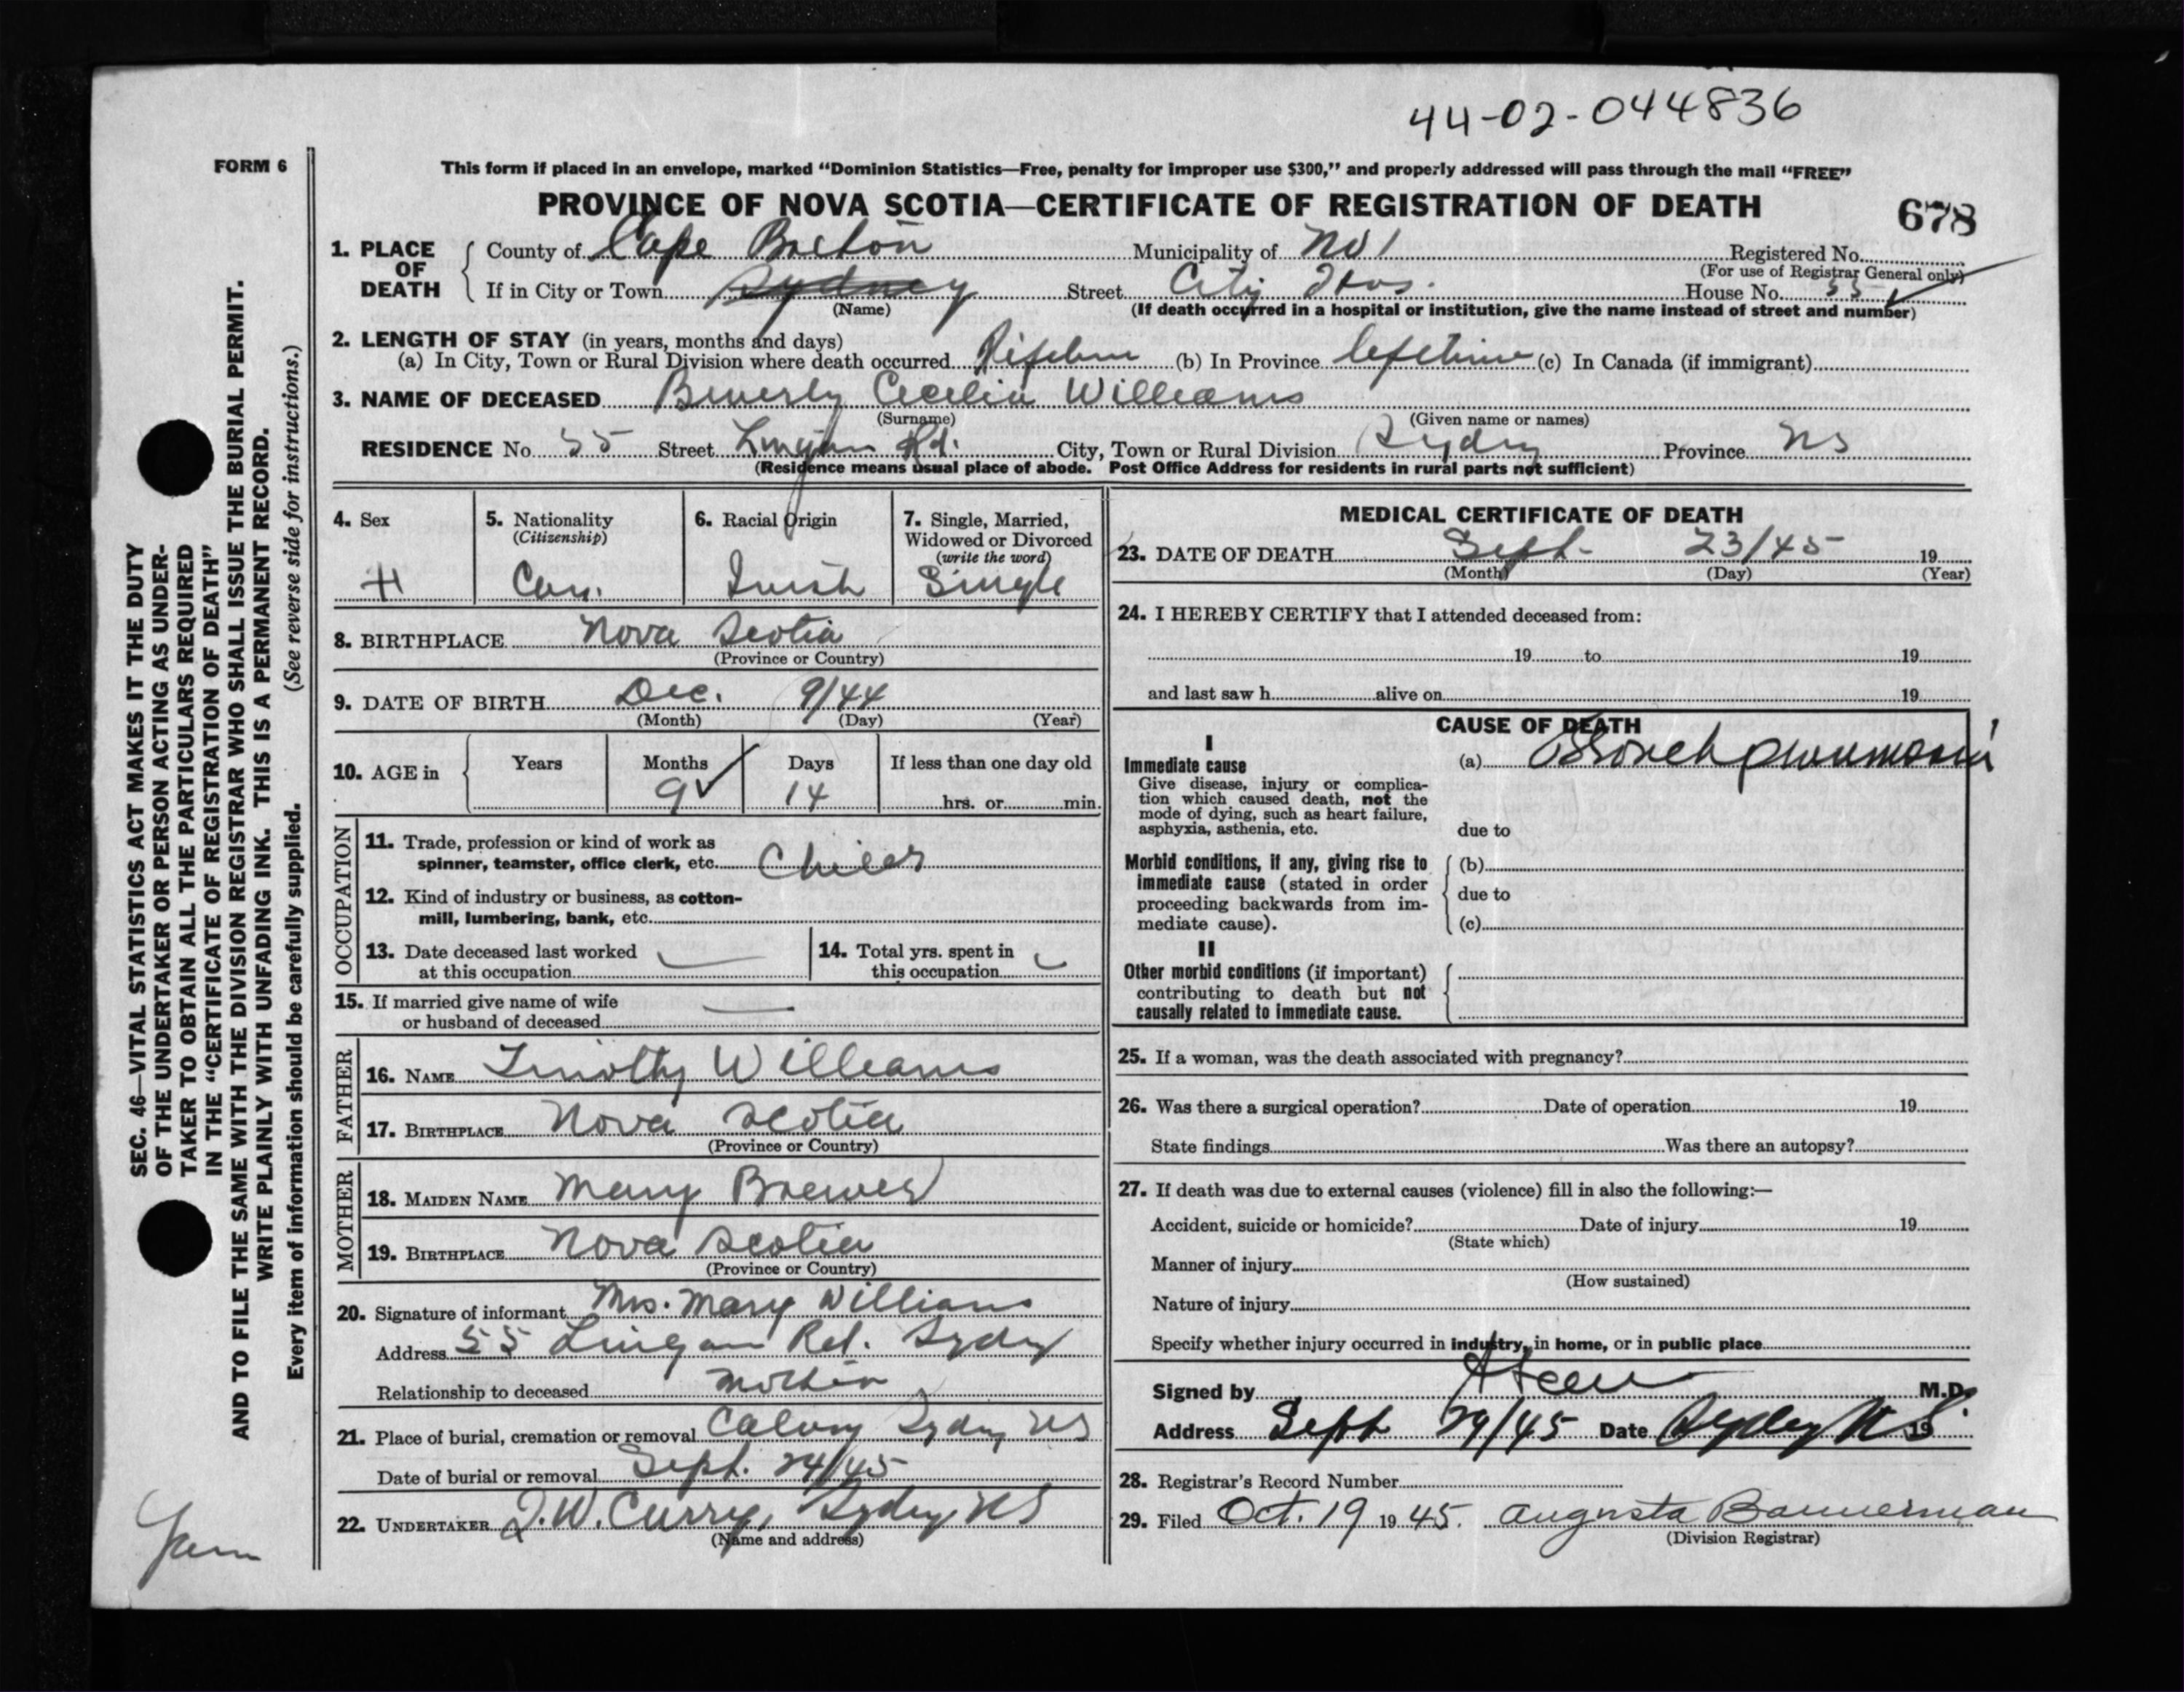 44-02-044836
FORM 6
This form if placed in an envelope, marked "Dominion Statistics—Free, penalty for improper use $300," and properly addressed will pass through the mail "FREE"
PROVINCE OF NOVA SCOTIA—CERTIFICATE OF REGISTRATION OF DEATH
678
1. PLACE OF DEATH County of Cape Breton Municipality of No 1 Registered No.
(For use of Registrar General only)
If in City or Town Sydney Street City Hos. House No. 55
(Name) (If death occurred in a hospital or institution, give the name instead of street and number)
2. LENGTH OF STAY (in years, months and days)
(a) In City, Town or Rural Division where death occurred Lifetime (b) In Province lifetime (c) In Canada (if immigrant)
3. NAME OF DECEASED Beverly Cecelia Williams
(Surname) (Given name or names)
RESIDENCE No. 55 Street Lingan Rd. City, Town or Rural Division Sydney Province NS
(Residence means usual place of abode. Post Office Address for residents in rural parts not sufficient)
4. Sex
5. Nationality
(Citizenship)
Can.
6. Racial Origin
Irish
7. Single, Married,
Widowed or Divorced
(write the word)
Single
8. BIRTHPLACE Nova Scotia
(Province or Country)
9. DATE OF BIRTH Dec. 9/44
(Month) (Day) (Year)
10. AGE in Years Months Days If less than one day old
9 14 hrs. or min.
OCCUPATION
11. Trade, profession or kind of work as
spinner, teamster, office clerk, etc.
12. Kind of industry or business, as cotton-
mill, lumbering, bank, etc.
13. Date deceased last worked
at this occupation
14. Total yrs. spent in
this occupation
15. If married give name of wife
or husband of deceased
FATHER
16. NAME Timothy Williams
17. BIRTHPLACE Nova Scotia
(Province or Country)
MOTHER
18. MAIDEN NAME Mary Brewer
19. BIRTHPLACE Nova Scotia
(Province or Country)
20. Signature of informant Mrs. Mary Williams
Address 55 Lingan Rd. Sydney
Relationship to deceased Mother
21. Place of burial, cremation or removal Calvary Sydney NS
Date of burial or removal Sept. 24/45
22. UNDERTAKER J.W. Curry, Sydney NS
(Name and address)
MEDICAL CERTIFICATE OF DEATH
23. DATE OF DEATH Sept. 23/45 19
(Month) (Day) (Year)
24. I HEREBY CERTIFY that I attended deceased from:
19 to 19
and last saw h alive on 19
CAUSE OF DEATH
I
Immediate cause (a) Bronchopneumonia
Give disease, injury or complica-
tion which caused death, not the
mode of dying, such as heart failure,
asphyxia, asthenia, etc.
due to
Morbid conditions, if any, giving rise to (b)
immediate cause (stated in order
due to
proceeding backwards from im-
mediate cause). (c)
II
Other morbid conditions (if important)
contributing to death but not
causally related to immediate cause.
25. If a woman, was the death associated with pregnancy?
26. Was there a surgical operation? Date of operation 19
State findings Was there an autopsy?
27. If death was due to external causes (violence) fill in also the following:—
Accident, suicide or homicide? Date of injury 19
(State which)
Manner of injury
(How sustained)
Nature of injury
Specify whether injury occurred in industry, in home, or in public place
Signed by M.D.
Address Sept 29/45 Date Sydney N S. 19
28. Registrar's Record Number
29. Filed Oct. 19 19 45. Augusta Bannerman
(Division Registrar)
SEC. 46—VITAL STATISTICS ACT MAKES IT THE DUTY
OF THE UNDERTAKER OR PERSON ACTING AS UNDER-
TAKER TO OBTAIN ALL THE PARTICULARS REQUIRED
IN THE "CERTIFICATE OF REGISTRATION OF DEATH"
AND TO FILE THE SAME WITH THE DIVISION REGISTRAR WHO SHALL ISSUE THE BURIAL PERMIT.
WRITE PLAINLY WITH UNFADING INK. THIS IS A PERMANENT RECORD.
Every item of information should be carefully supplied. (See reverse side for instructions.)